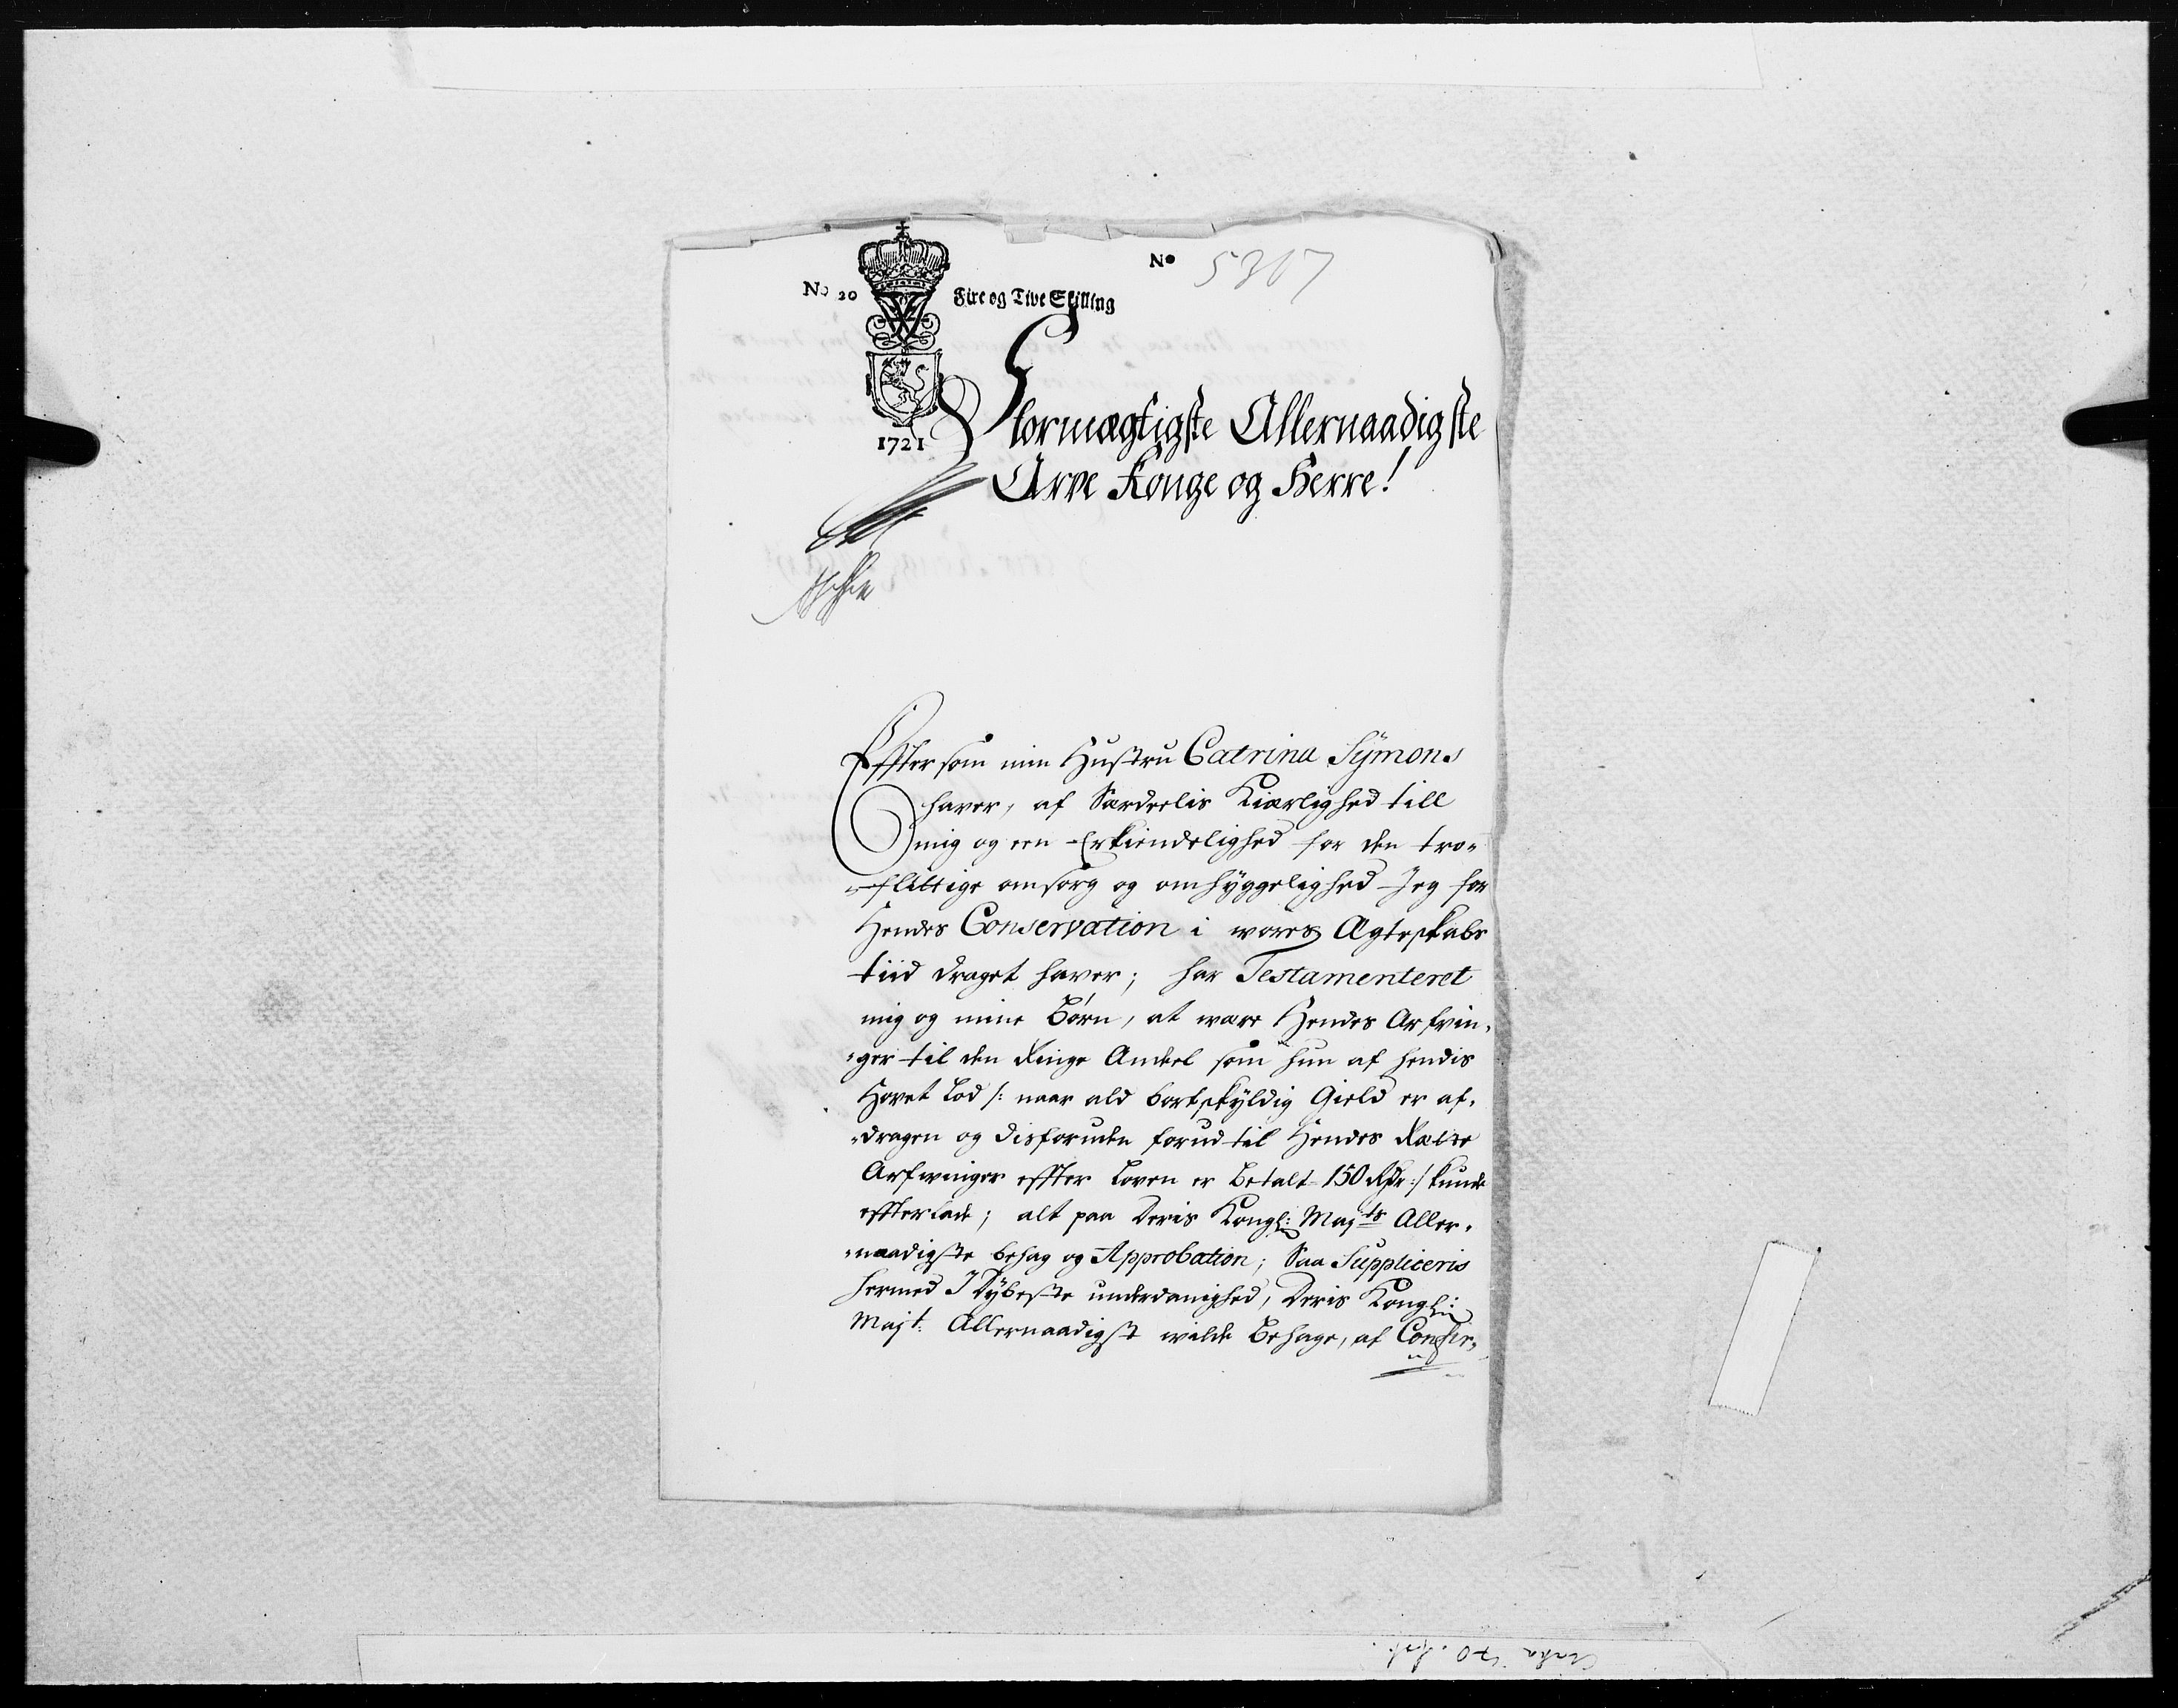 No 20
Fire og Tive Skilling
No 5307
1721
Stormægtigste Allernaadigste
Arve Konge og Herre!
Efftersom min Hustru Catrina Sÿmons
haver, af Særdeelis Kiærlighed till
mig og een Erkiendelighed for den troe
flittige omsorg og omhÿggelighed Jeg for
Hendes Conservation i wores Ægteskabs
tiid draget haver; har Testamenteret
mig og mine Børn, at være Hendes Arfvin-
-ger til den Ringe Andeel som hun af hendis
Hovet Lod /: naar ald bortskÿldig Gield er af-
-dragen og disforuden forud til Hendes Rætte
Arfvinger effter Loven er Betalt 150 Rdr :/ kunde
effterlade; alt paa Deris Kongl: Majts Aller-
-naadigste behag og Approbation; Saa Suppliceris
hermed I Dÿbeste underdanighed, Deris Kongl:
Majt: Allernaadigst wilde Behage, at Confir-